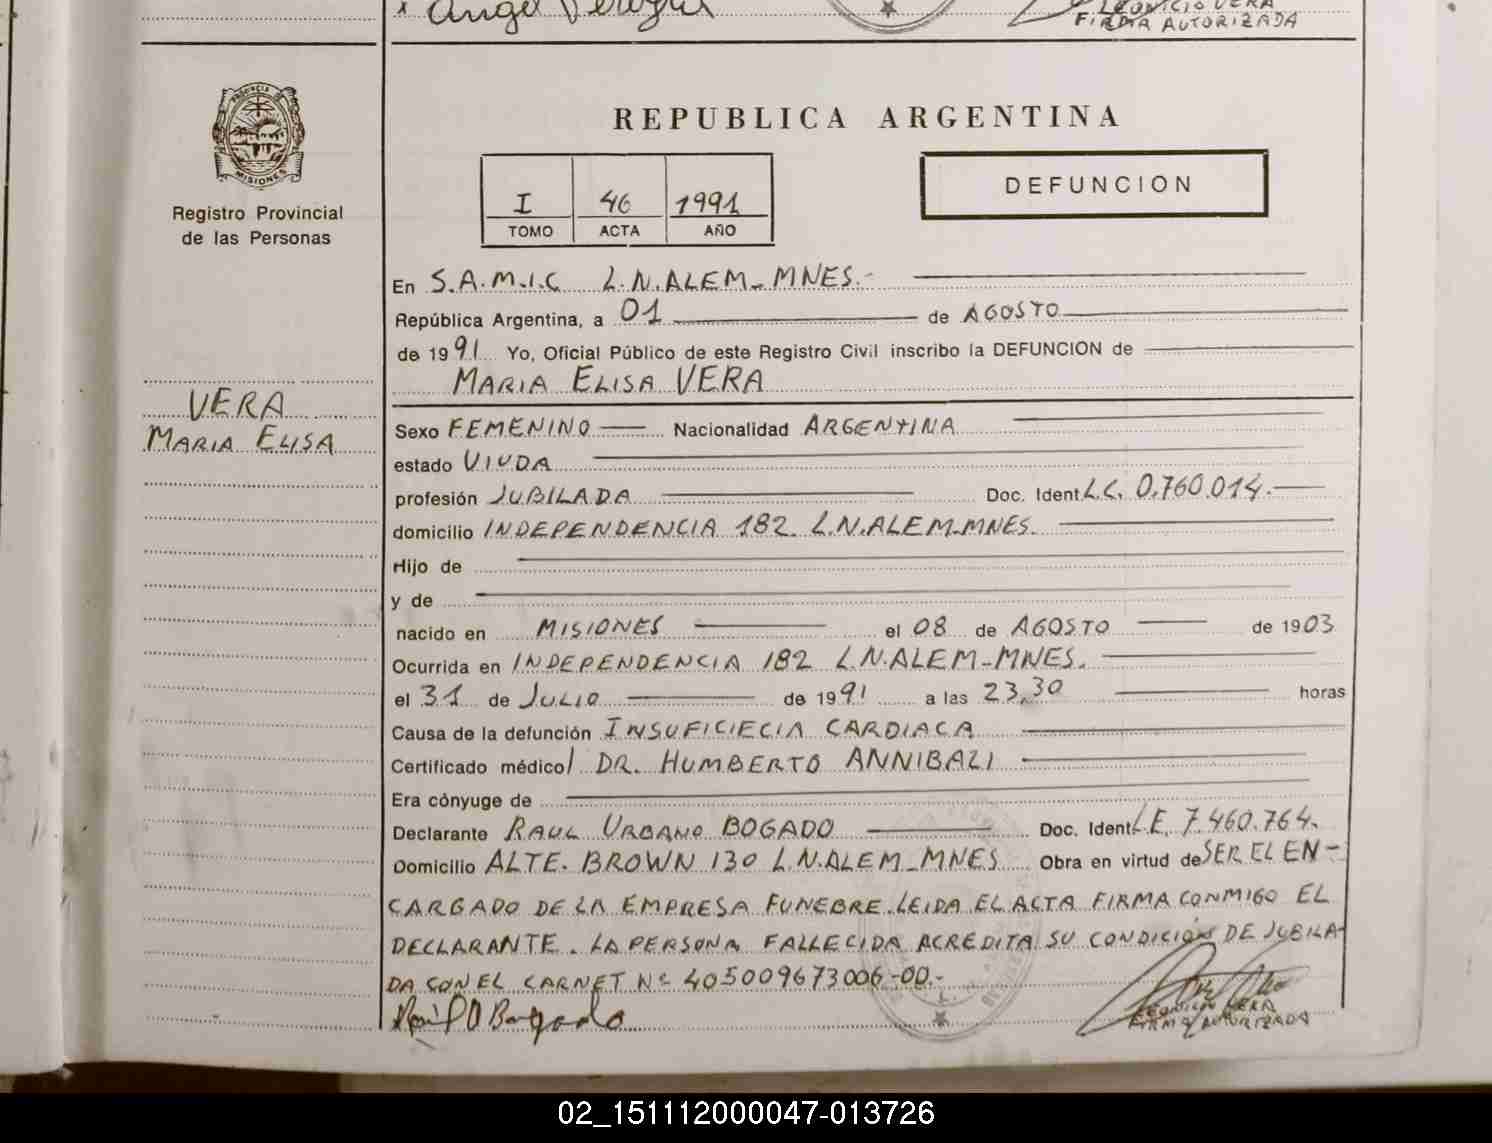 Angel Pereyra
LEONICIO VERA
FIRMA AUTORIZADA
PROVINCIA DE
MISIONES
Registro Provincial
de las Personas
REPUBLICA ARGENTINA
I 46 1991
TOMO ACTA AÑO
DEFUNCION
En S.A.M.I.C L.N.ALEM-MNES.-
República Argentina, a 01 de AGOSTO
de 1991 Yo, Oficial Público de este Registro Civil inscribo la DEFUNCION de
MARIA ELISA VERA
VERA
MARIA ELISA
Sexo FEMENINO Nacionalidad ARGENTINA
estado VIUDA
profesión JUBILADA Doc. Ident. L.C. 0.760.014.-
domicilio INDEPENDENCIA 182 L.N.ALEM-MNES.
Hijo de
y de
nacido en MISIONES el 08 de AGOSTO de 1903
Ocurrida en INDEPENDENCIA 182 L.N.ALEM-MNES.
el 31 de JULIO de 1991 a las 23,30 horas
Causa de la defunción INSUFICIECIA CARDIACA
Certificado médico DR. HUMBERTO ANNIBALI
Era cónyuge de
Declarante RAUL URBANO BOGADO Doc. Ident. L.E. 7.460.764.
Domicilio ALTE. BROWN 130 L.N.ALEM-MNES Obra en virtud de SER EL EN-
CARGADO DE LA EMPRESA FUNEBRE.LEIDA EL ACTA FIRMA CONMIGO EL
DECLARANTE. LA PERSONA FALLECIDA ACREDITA SU CONDICIÓN DE JUBILA-
DA CON EL CARNET Nº 405009673006-00.-
Raúl U Bogado
LEONICIO VERA
FIRMA AUTORIZADA
02_151112000047-013726